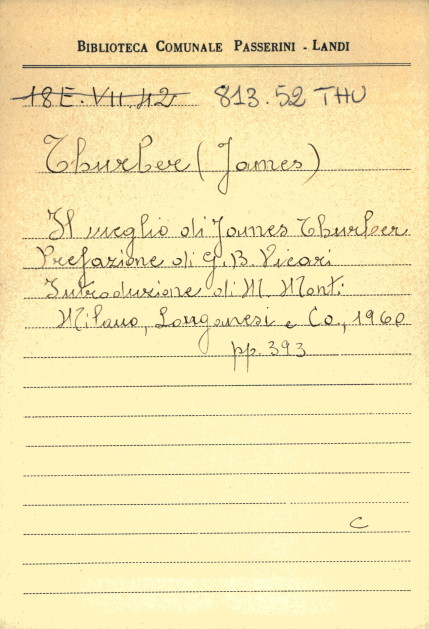 BIBLIOTECA COMUNALE PASSERINI - LANDI
18 E. VII. 42 813.52 THU
Thurber (James)
Il meglio di James Thurber
Prefazione di G. B. Vicari
Introduzione di M. Monti
Milano, Longanesi e Co., 1960
pp. 393
C